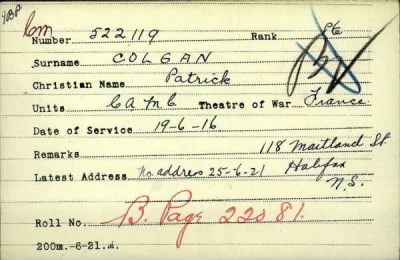 90BP. Cm
Number 522119 Rank Pte
BV
Surname COLGAN
Christian Name Patrick
Units C A M C Theatre of War France
Date of Service 19-6-16
Remarks 118 Maitland St.
Latest Address No address 25-6-21 Halifax
N.S.
Roll No. B. Page 22081.
200m.-6-21.